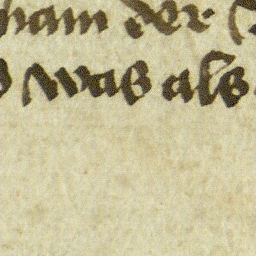 nam der
was als